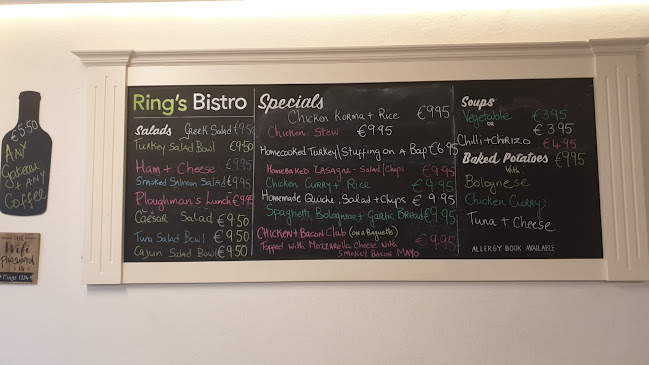 €5.50
ANY
Gateau
+ ANY
Coffee
THE
Wifi
Password
is
Ring's Bistro
Salads
Greek Salad €9.50
Turkey Salad Bowl €9.50
Ham + Cheese €9.95
Smoked Salmon Salad €9.95
Ploughman's Lunch €9.95
Caesar Salad €9.50
Tuna Salad Bowl €9.50
Cajun Salad Bowl €9.50
Specials
Chicken Korma + Rice €9.95
Chicken Stew €9.95
Homecooked Turkey/Stuffing on A Bap €6.95
Homebaked Lasagne - Salad/Chips €9.95
Chicken Curry + Rice €9.95
Homemade Quiche, Salad + Chips €9.95
Spaghetti Bolognese + Garlic Bread €9.95
Chicken + Bacon Club (on a Baguette)
Topped with Mozzarella Cheese with €9.95
Smokey Bacon Mayo
Soups
Vegetable €3.95
OR €3.95
Chilli + Chirizo €4.95
Baked Potatoes €9.95
With
Bolognese
Chicken Curry
Tuna + Cheese
Allergy Book Available